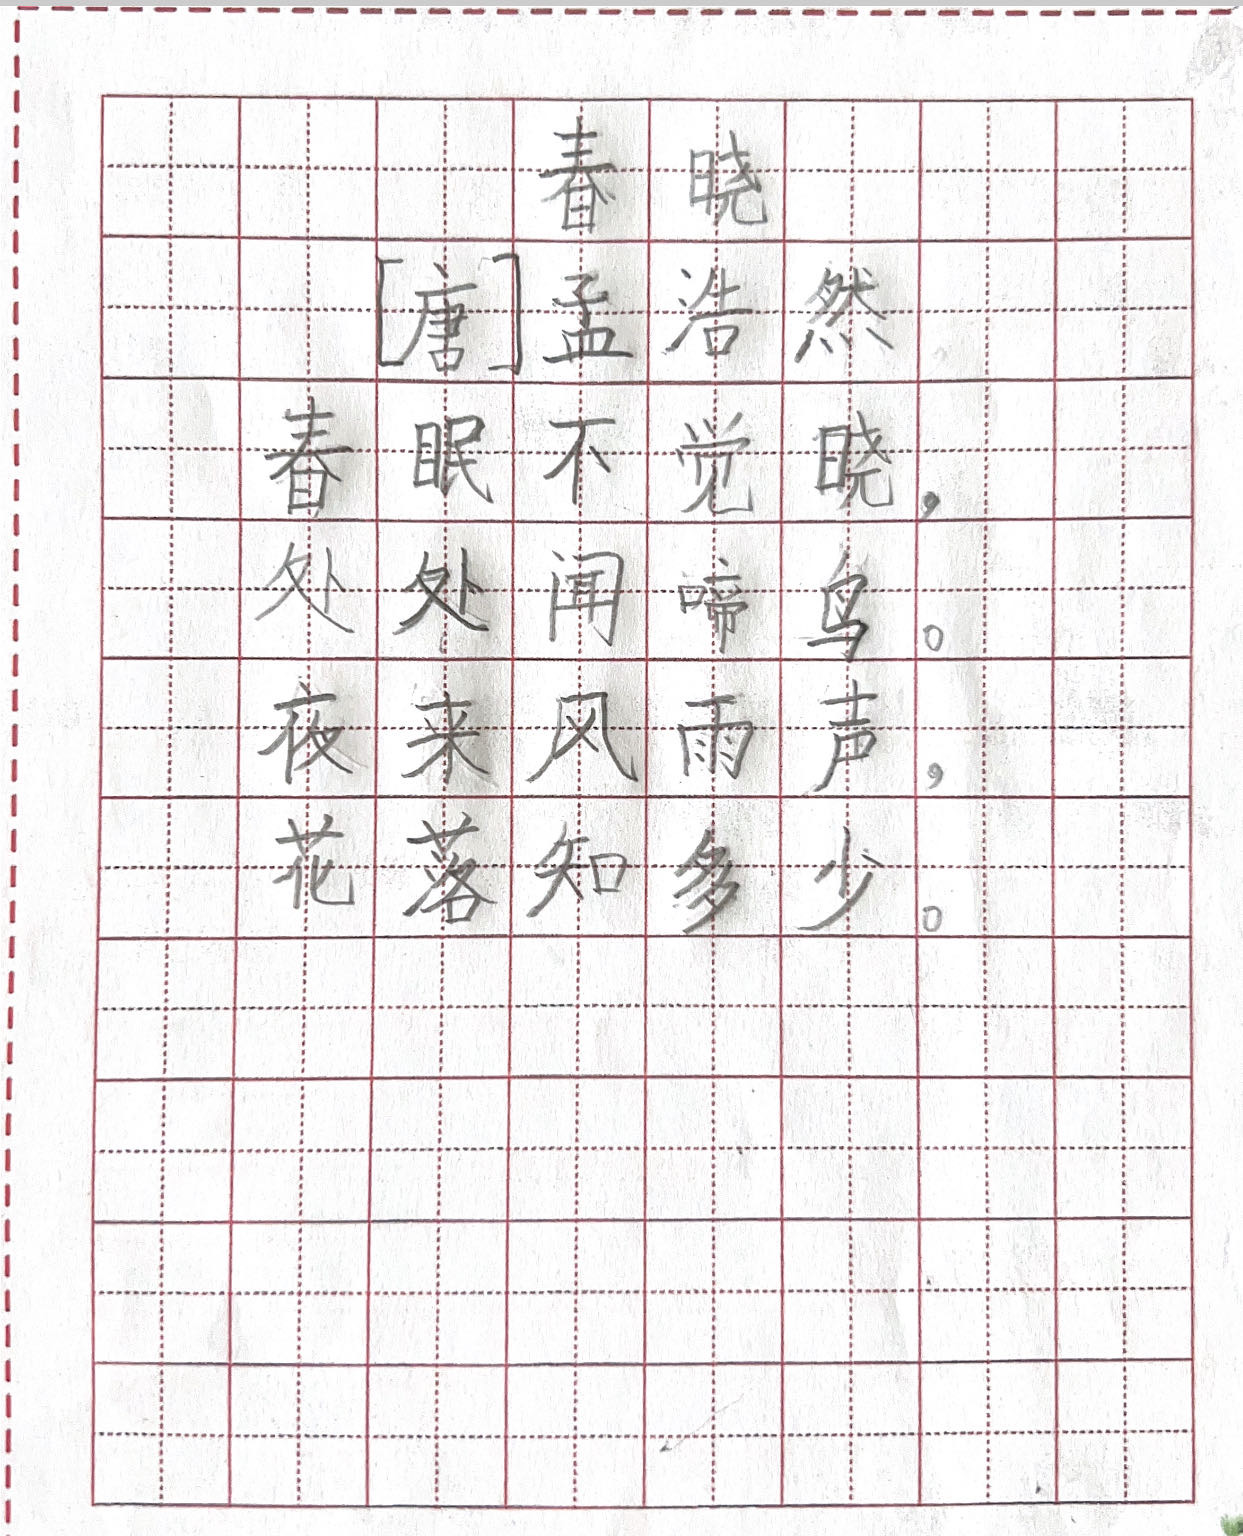 春晓
[唐]孟浩然
春眠不觉晓，
处处闻啼鸟。
夜来风雨声，
花落知多少。